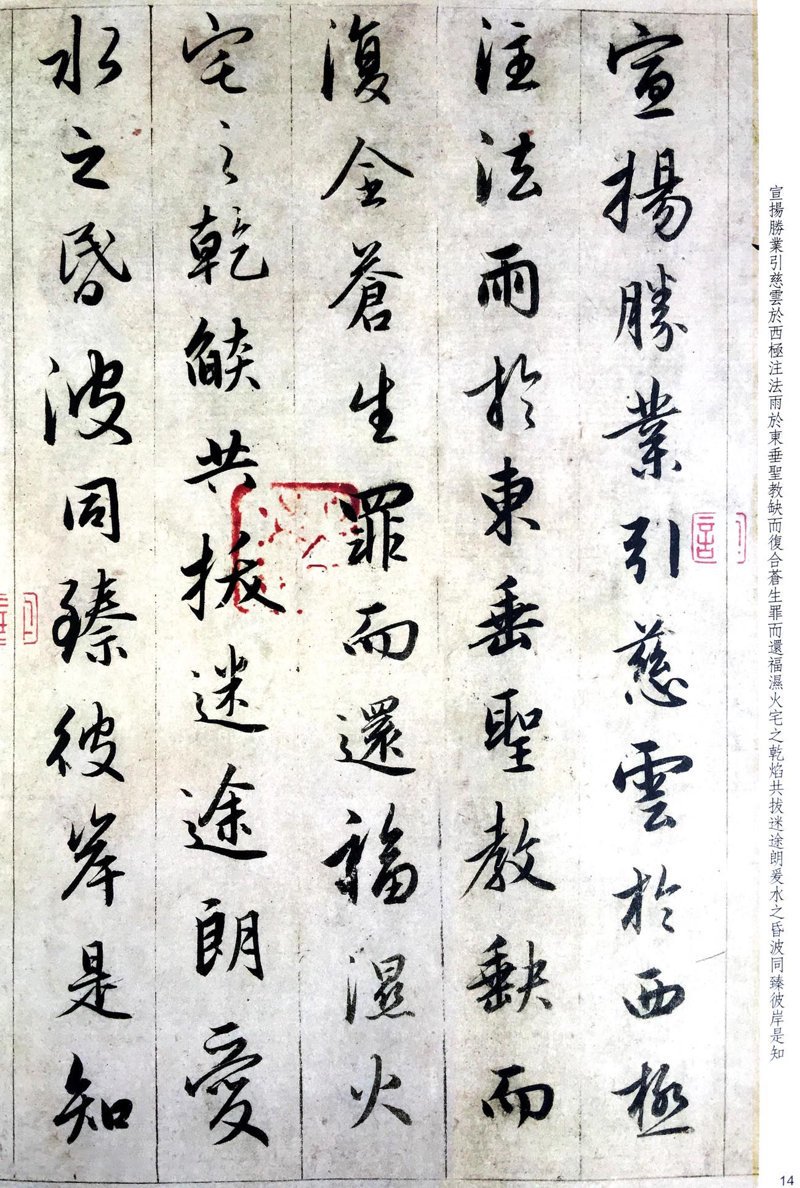 宣揚勝業引慈雲於西極
注法雨於東垂聖教缺而
復全蒼生罪而還福濕火
宅之乾燄共拔迷途朗愛
水之昏波同臻彼岸是知
宣揚勝業引慈雲於西極注法雨於東垂聖教缺而復合蒼生罪而還福濕火宅之乾焰共拔迷途朗爰水之昏波同臻彼岸是知
14